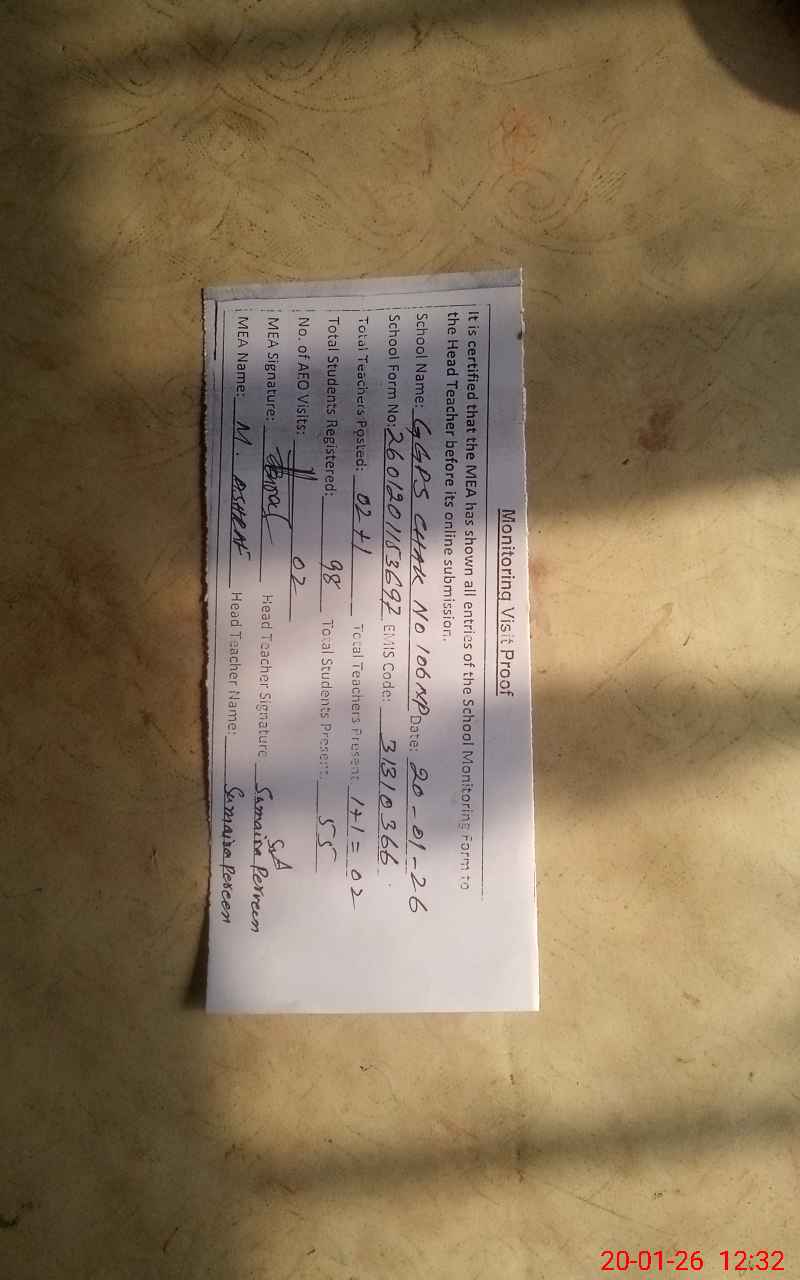 Monitoring Visit Proof
It is certified that the MEA has shown all entries of the School Monitoring Form to
the Head Teacher before its online submission.
School Name: GGPS CHAK NO 106 NP Date: 20-01-26
School Form No: 2601201153697 EMIS Code: 31310366
Total Teachers Posted: 02+1 Total Teachers Present: 1+1=02
Total Students Registered: 98 Total Students Present: 55
No. of AEO Visits: 02
MEA Signature: Head Teacher Signature Sumaira Perveen
MEA Name: M. ASHRAF Head Teacher Name: Sumaira Perveen
20-01-26 12:32